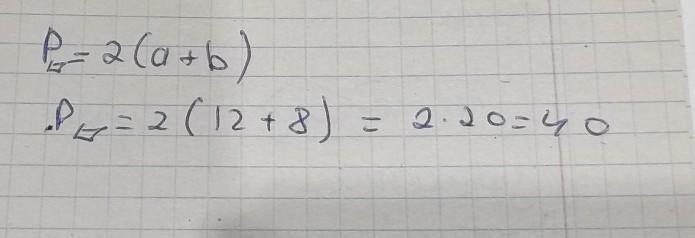 P▱ = 2(a+b)
P▱ = 2(12+8) = 2·20=40